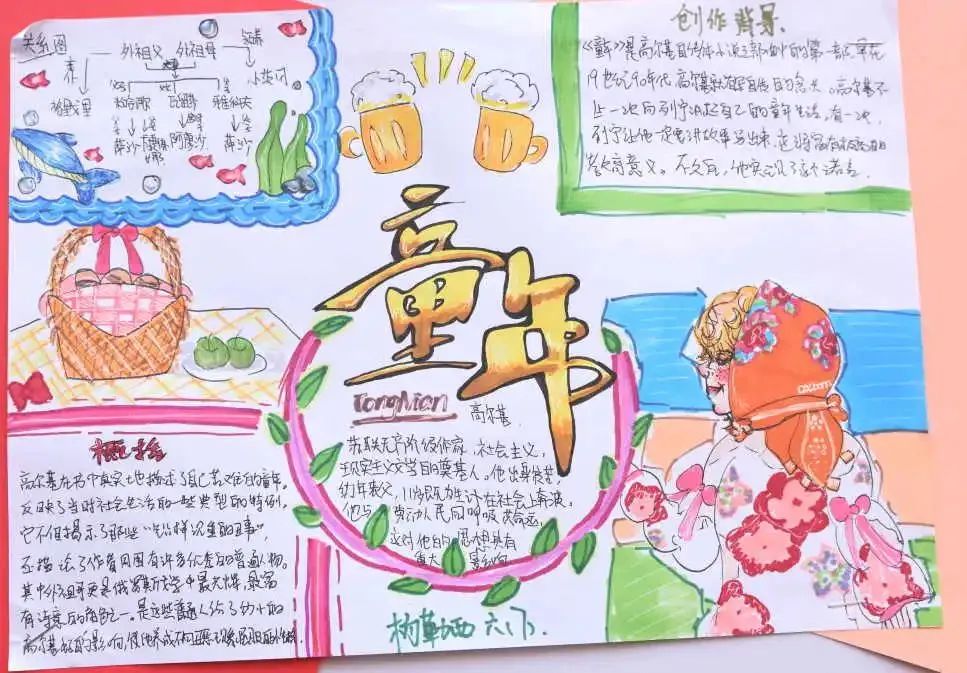 关系图
外祖父 外祖母
小茶河
雅科夫
萨沙
萨沙
创作背景
《童年》是高尔基自传体小说三部曲中的第一部。早在
19世纪90年代,高尔基就有撰写自传的
高尔基不
止一次向列宁讲起自己的童年生活,有一次,
列宁让他一定要讲故事写出来,这将富有极高的
教育意义。不久后,他实现了这个诺言。
童年
TongNian
高尔基
苏联无产阶级作家,社会主义,
现实主义文学的奠基人。他出身贫苦,
幼年丧父,11岁即为生计在社会上奔波,
他与劳动人民同呼吸共命运,
这对他的思想具有
重大影响
概括
高尔基在书中真实地描述了自己苦难的童年。
反映了当时社会生活的一些典型的特例,
它不但揭示了那些“铅样沉重的丑事”
还描绘了作者周围有许多优秀的普通人物。
其中外祖母更是俄罗斯文学中最光辉,最富
有诗意的角色之一。是这些普通人给了幼小的
高尔基的影响,使他养成不向丑恶现象屈服的性格
六(7)